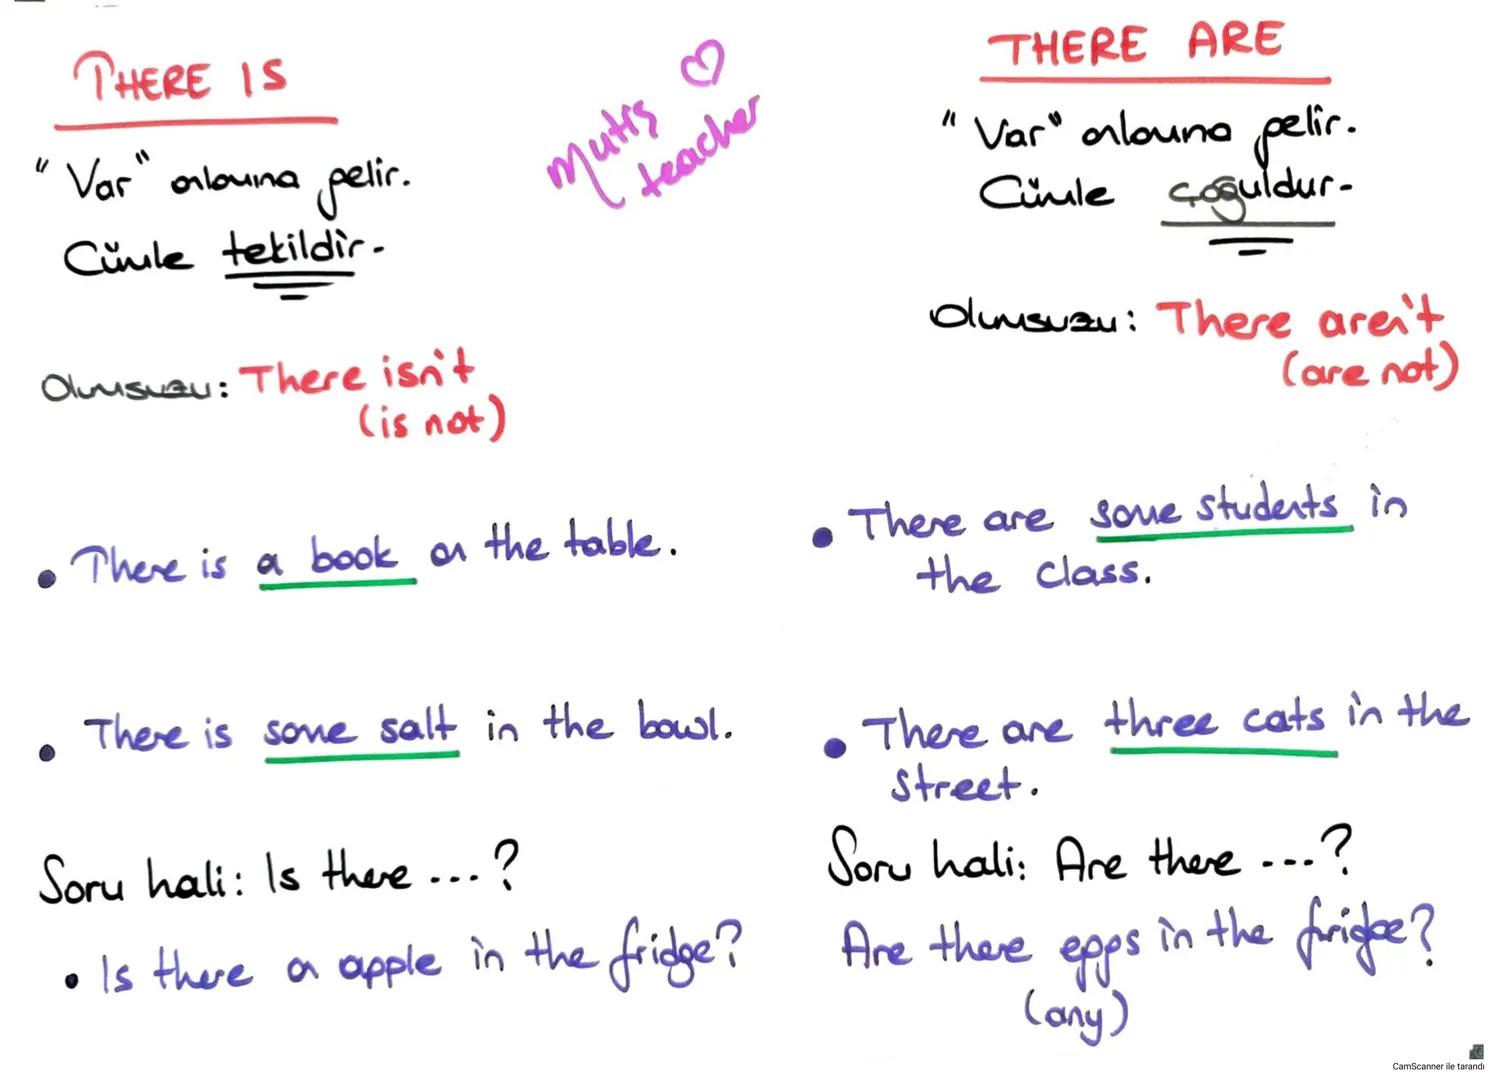 THERE IS
"Var" anlamına gelir.
Cümle tekildir.
Olumsuzu: There isn't
(is not)
• There is a book on the table.
• There is some salt in the bowl.
Soru hali: Is there ...?
• Is there an apple in the fridge?
Mutiş
teacher
THERE ARE
"Var" anlamına gelir.
Cümle çoğuldur.
Olumsuzu: There aren't
(are not)
• There are some students in
the class.
• There are three cats in the
street.
Soru hali: Are there ...?
Are there eggs in the fridge?
(any)
CamScanner ile tarandı